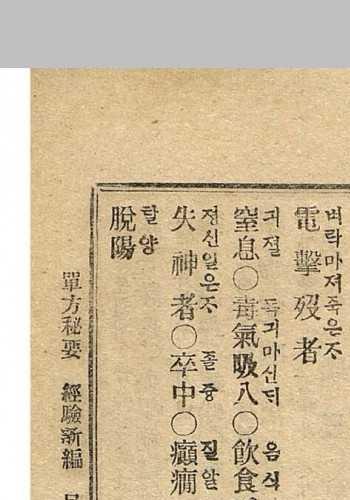 벼락마저죽은ᄌᆞ
電擊歿者
긔졀 독긔마신ᄃᆡ 음식
窒息○毒氣吸入○飮食
정신일은ᄌᆞ 졸즁 질알
失神者○卒中○癲癎
탈양
脫陽
單方秘要 經驗新編